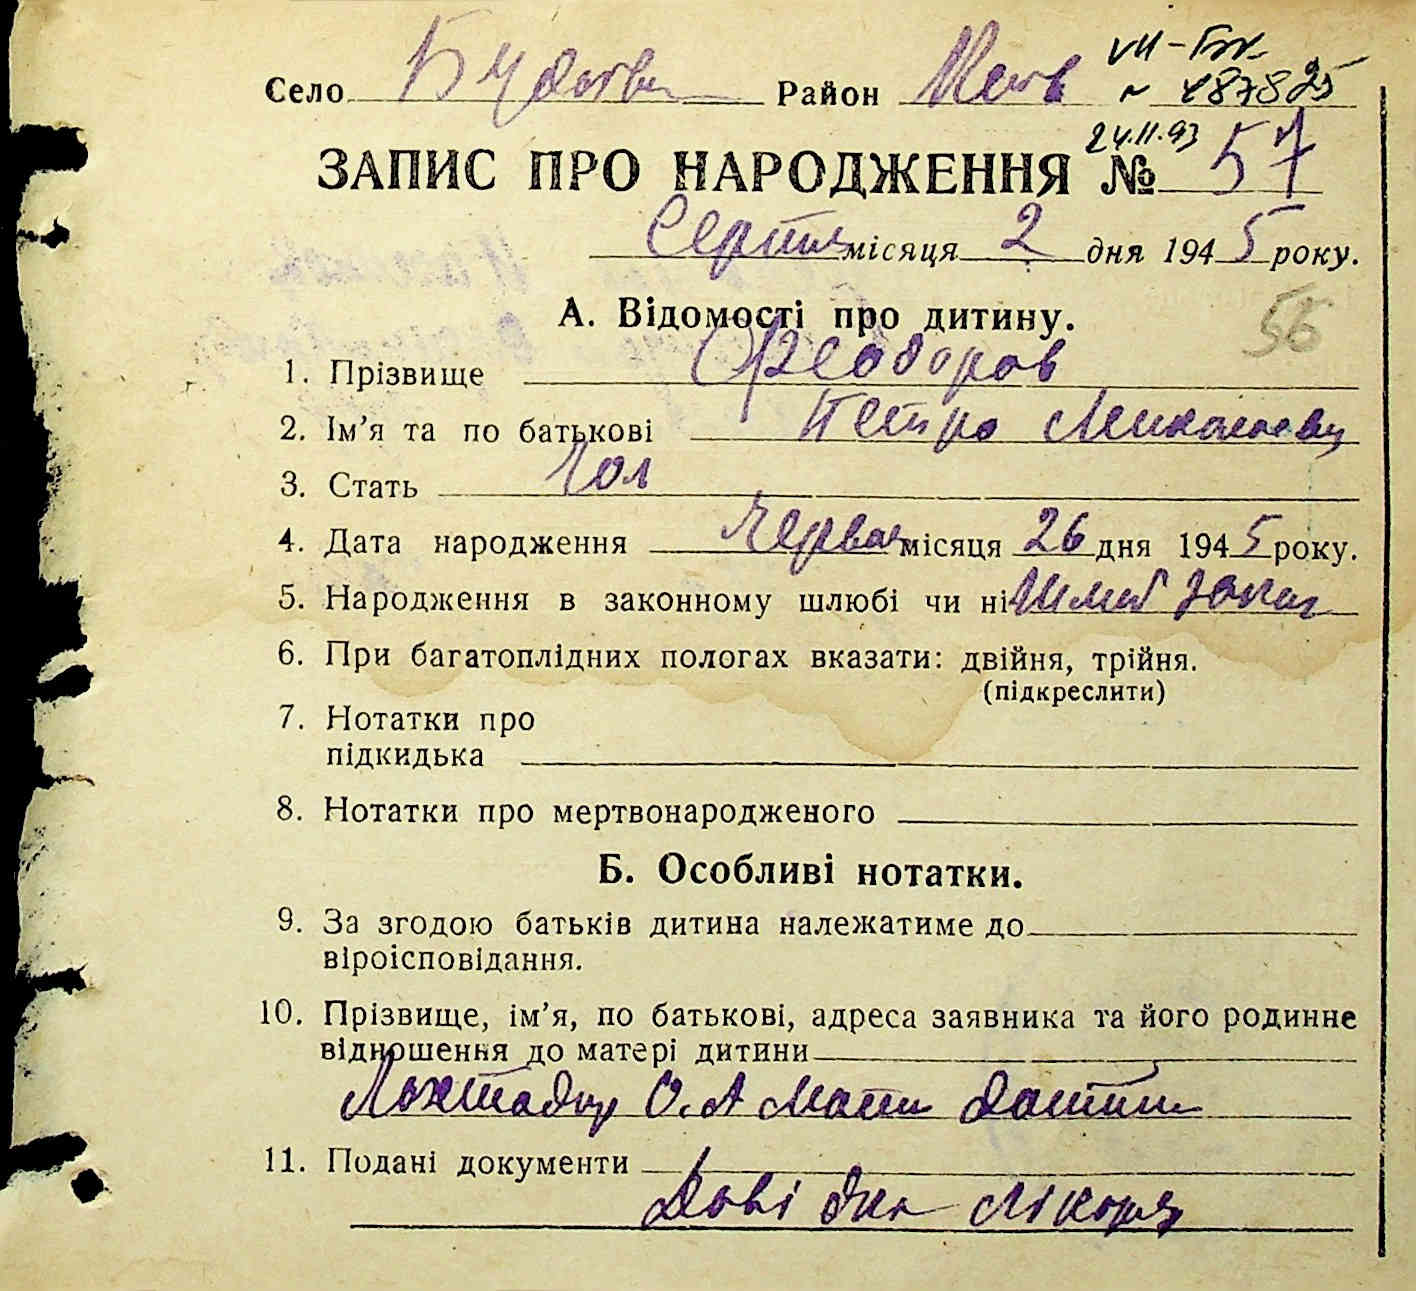 Село Район
№ 187825
24.11.93
ЗАПИС ПРО НАРОДЖЕННЯ № 57
Серпня місяця 2 дня 1945 року.
А. Відомості про дитину.
56
1. Прізвище Феодоров
2. Ім'я та по батькові Петро Миколаевич
3. Стать Чол
4. Дата народження Червня місяця 26 дня 1945 року.
5. Народження в законному шлюбі чи ні Шлюб
6. При багатоплідних пологах вказати: двійня, трійня.
(підкреслити)
7. Нотатки про
підкидька
8. Нотатки про мертвонародженого
Б. Особливі нотатки.
9. За згодою батьків дитина належатиме до
віроісповідання.
10. Прізвище, ім'я, по батькові, адреса заявника та його родинне
відношення до матері дитини
О. А Мати
11. Подані документи
Довідка лікаря